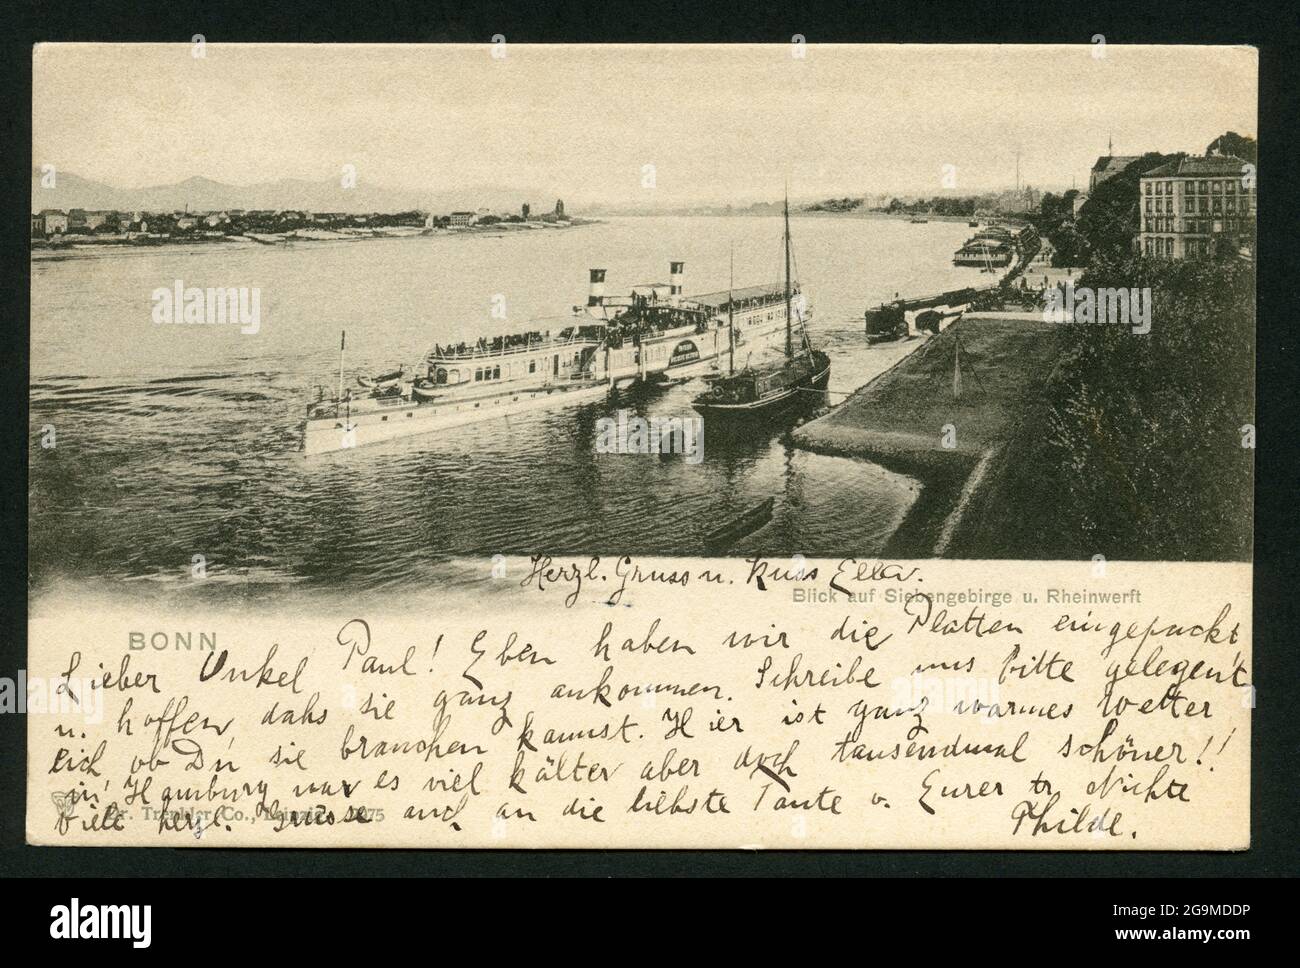 Herzl. Gruss u. Kuss Ella.
Blick auf Siebengebirge u. Rheinwerft
BONN
Lieber Onkel Paul! Eben haben wir die Platten eingepackt,
u. hoffen, dahs sie ganz ankommen. Schreibe uns bitte gelegent
lich, ob Du sie brauchen kannst. Hier ist ganz warmes Wetter
in Hamburg war es viel kälter aber doch tausendmal schöner!!
Viele herzl. Grüsse auch an die liebste Tante v. Eurer tr. Nichte
Thilde.
Dr. Trenkler Co., Leipzig
alamy
Image ID: 2G9MDDP
www.alamy.com